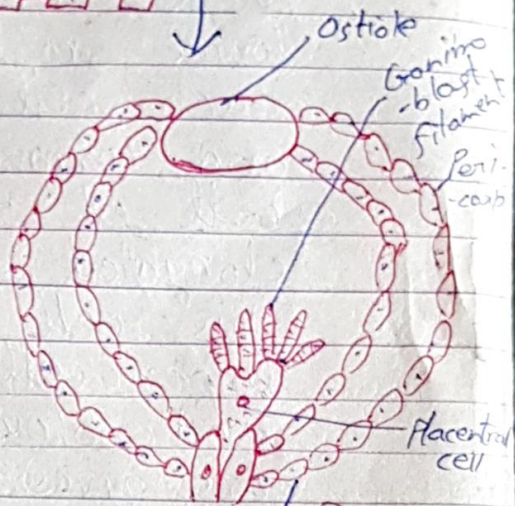 Ostiole
Gonimo
-blast
filament
Peri-
-carp
Placentral
cell